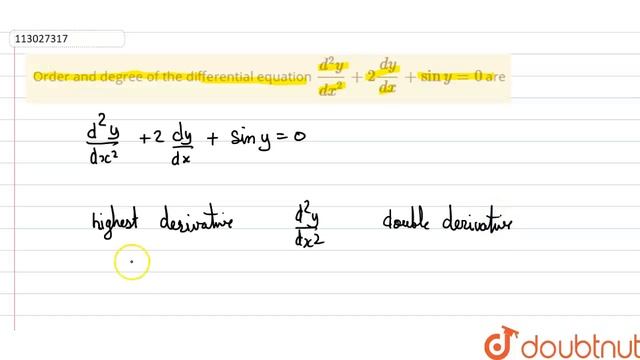 113027317
Order and degree of the differential equation d²y/dx² + 2 dy/dx + sin y = 0 are
d²y/dx² + 2 dy/dx + sin y = 0
highest derivative d²y/dx² double derivative
doubtnut